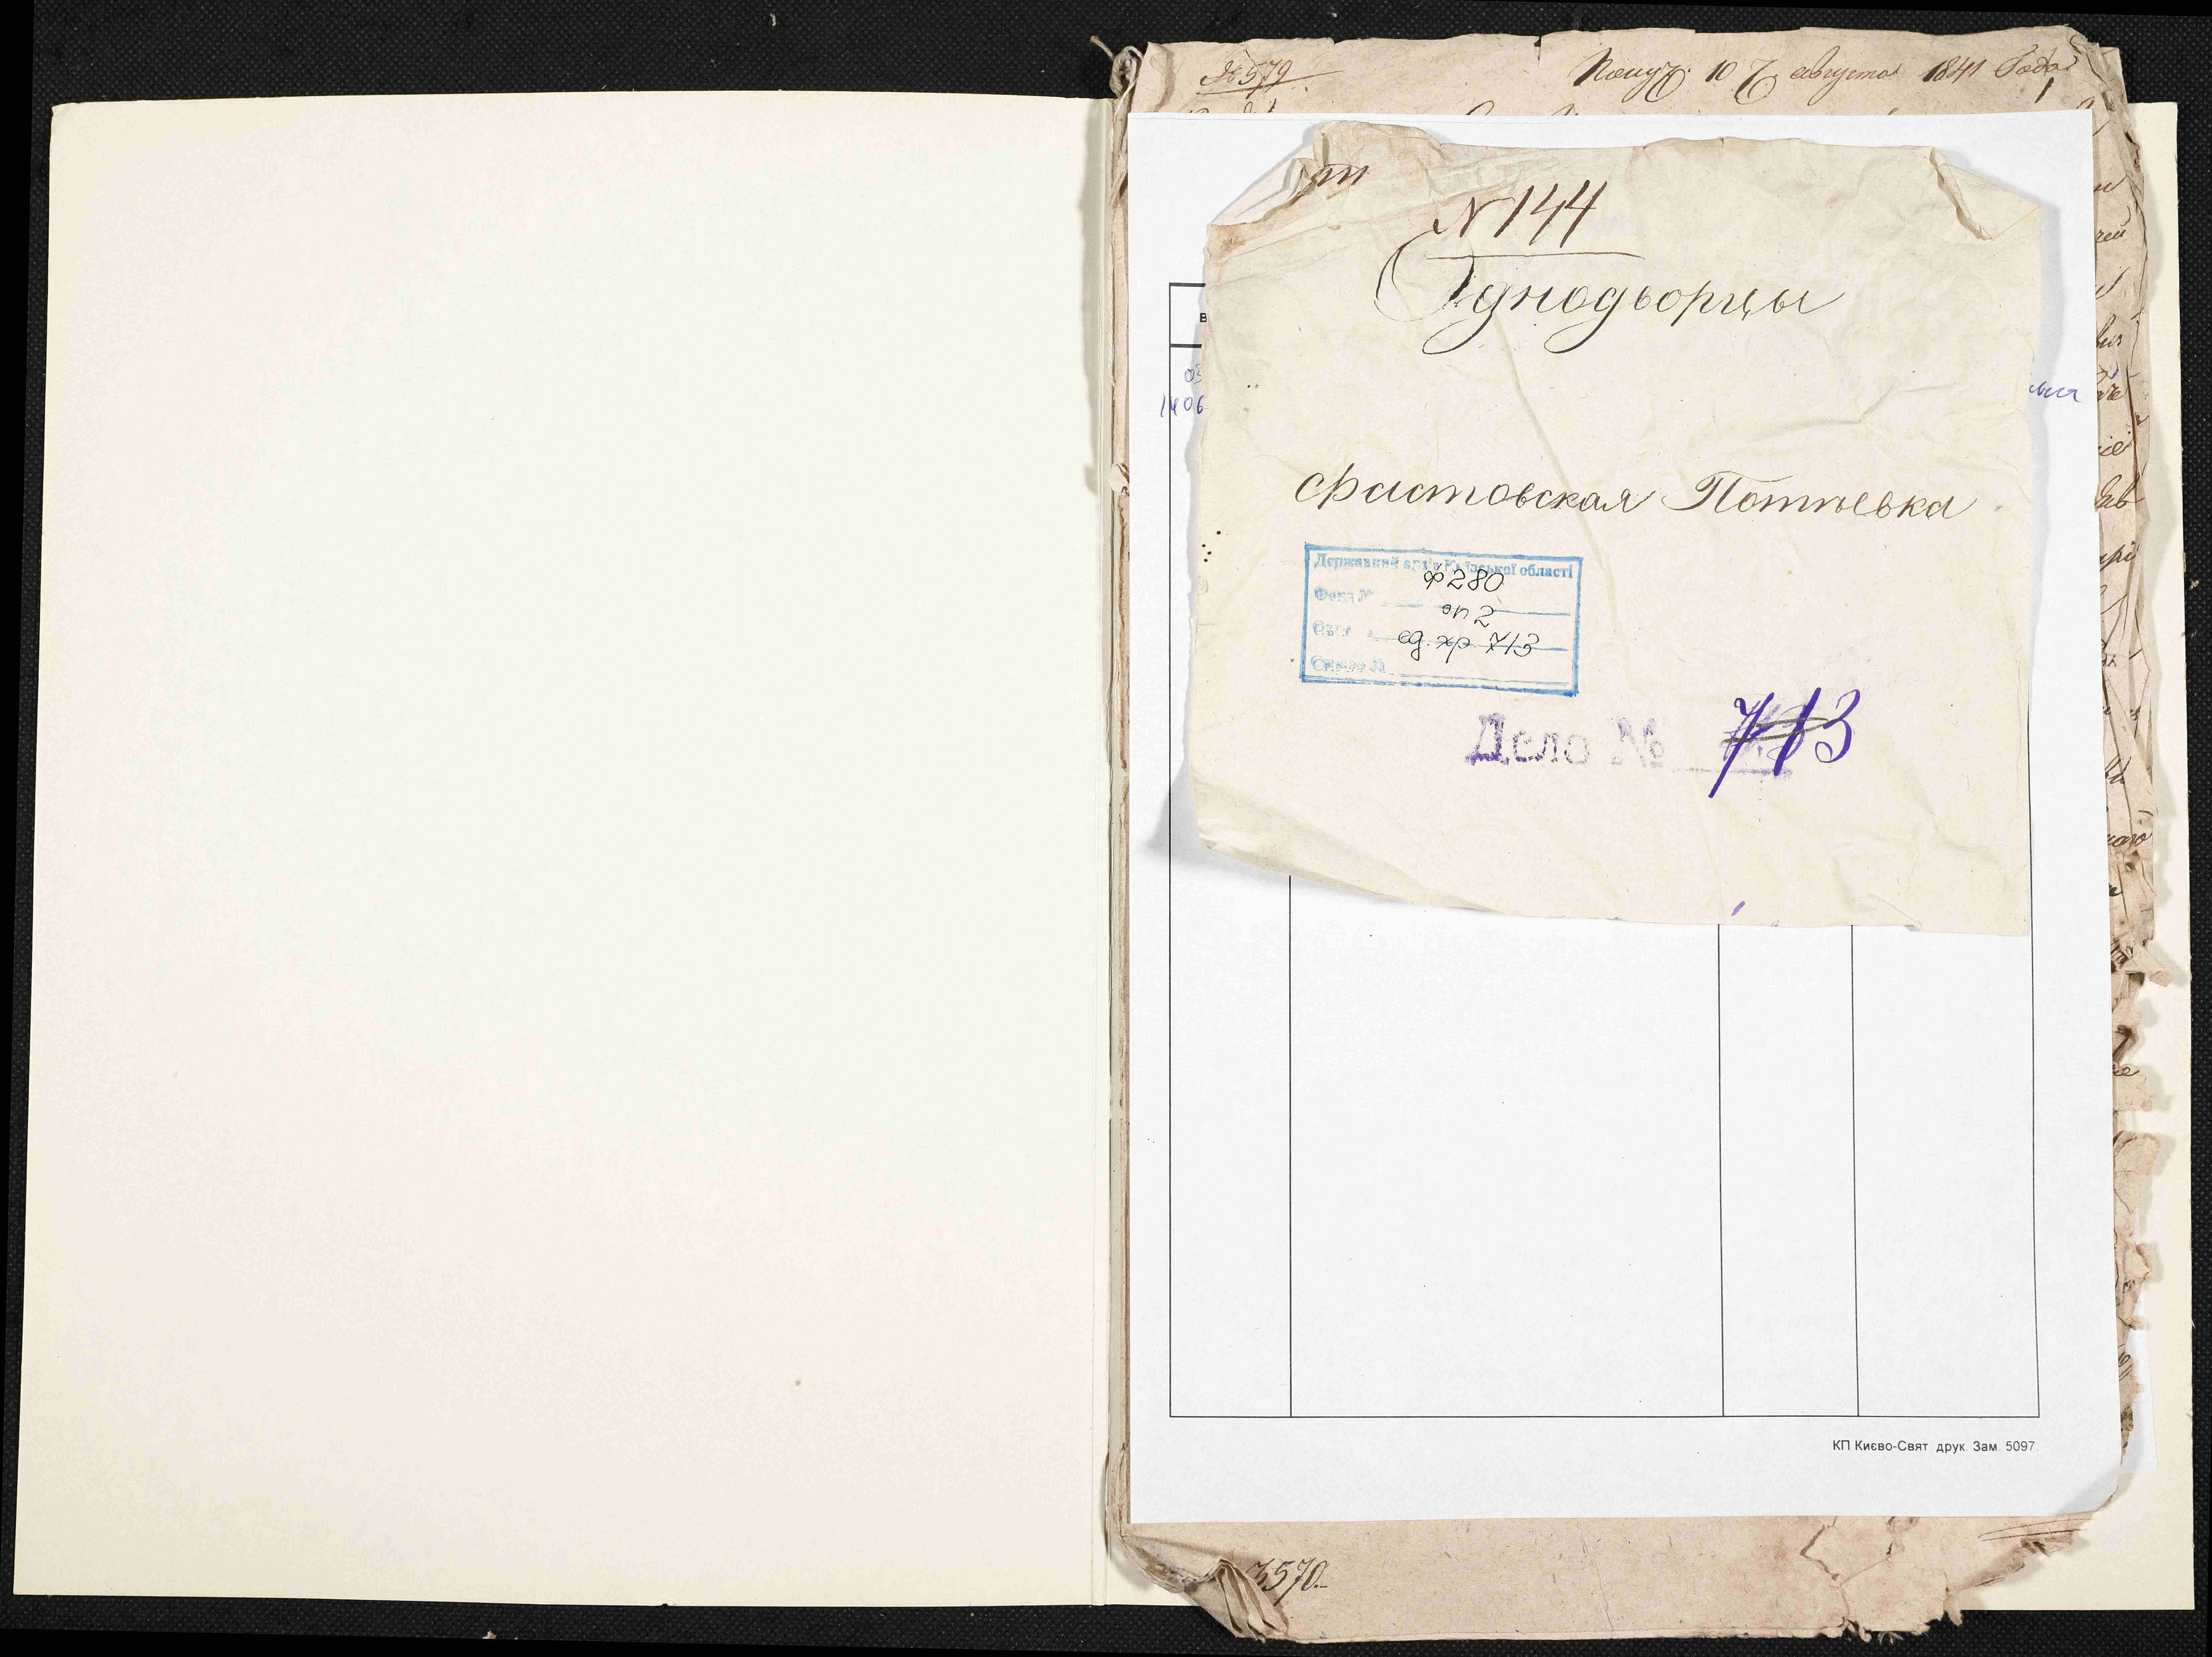 № 579
Получ. 10 августа 1841 Года
1
N 144
Однодворцы
Фастовская Потиевка
Державний архів Київської області
Фонд № ф 280
оп 2
ед. хр. 713
Справа №
Дело № 713
КП Києво-Свят. друк. Зам. 5097.
3570.